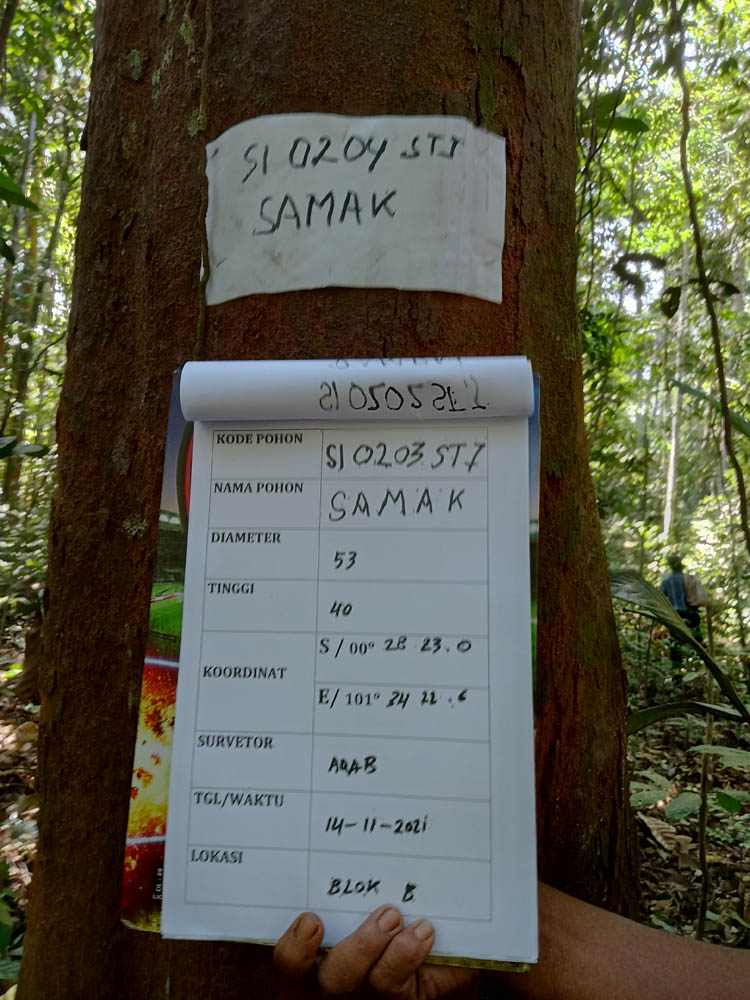 SI 0204 STJ
SAMAK
SI 0205 STJ
KODE POHON SJ 0203 STJ
NAMA POHON SAMAK
DIAMETER 53
TINGGI 40
KOORDINAT S / 00° 28 23.0
E/ 101° 34 22.6
SURVETOR
TGL/WAKTU 14-11-2021
LOKASI BLOK B